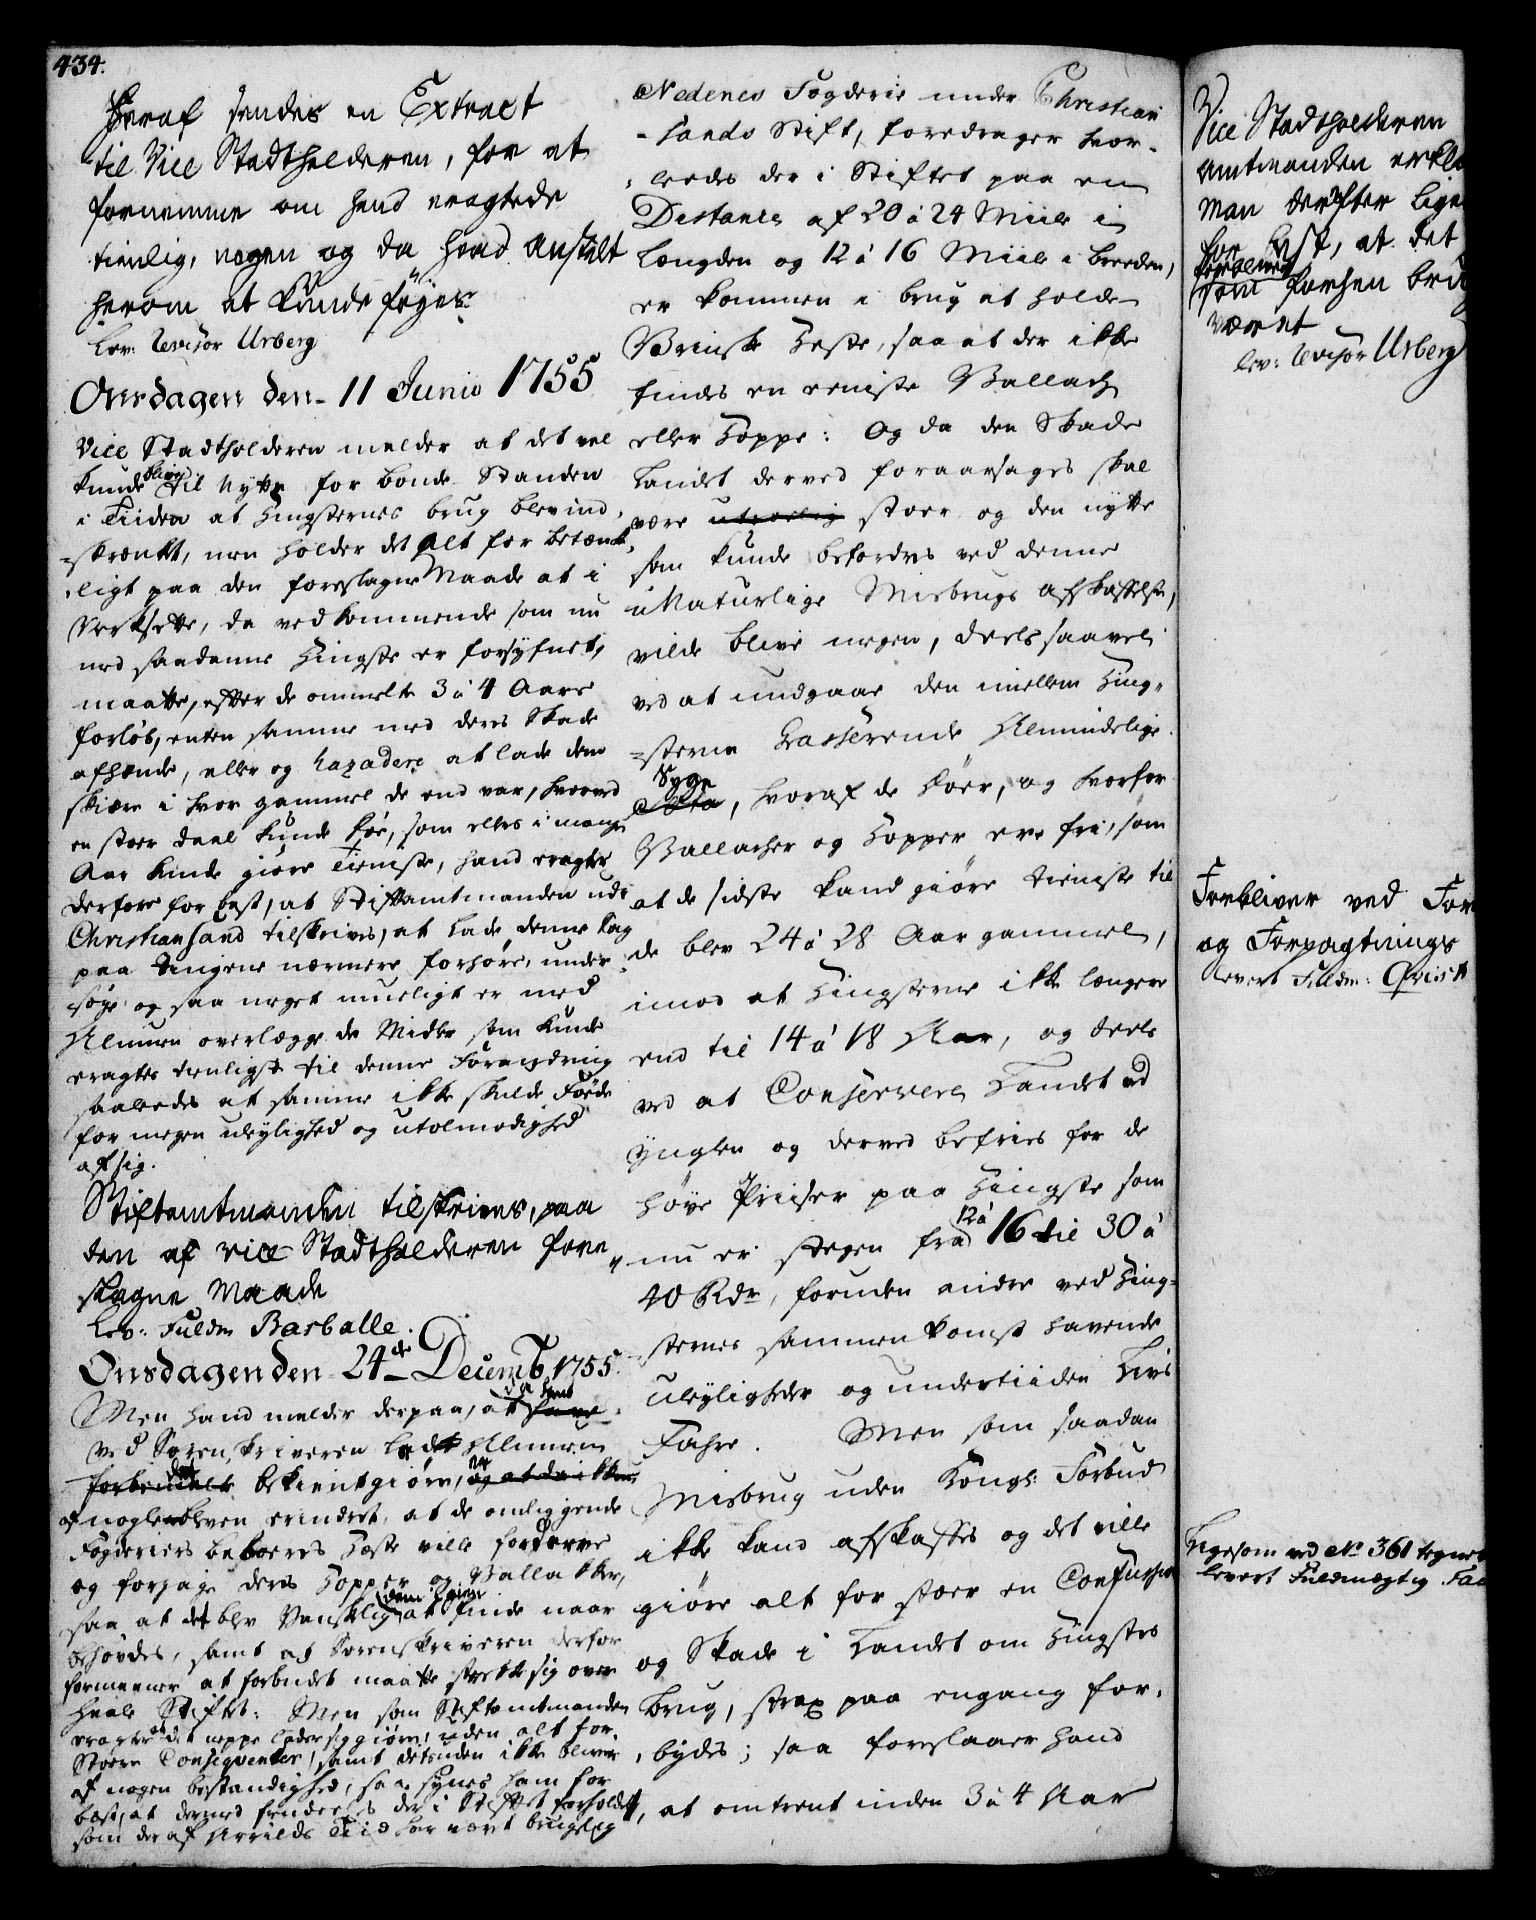 434.
Heraf sendes en Extract
til Vice Stadtholderen, for at
fornemme om hand eragtede
tienlig, nogen og da hvad Anstalt
herom at kunde föyes.
Lev: Revisor Urberg
Onsdagen den 11 Junio 1755
Vice Stadtholderen melder at det vel
kunde blive til Nytte for bonde-Standen
i Tiiden at Hingsternes brug blev ind-
skrænkt, men holder det alt for betænk-
ligt paa den foreslagne Maade at i
Værksette, da vedkommende som nu
med saadanne Hingste er forsyfnet,
maatte, efter de ommelte 3 à 4 Aars
forlöb, enten samme med deres Skade
afhænde, eller og hazadere at lade dem
skiære i hvor gammel de end var, hvorved
en stoer deel kunde döe, som elles i mange
Aar kunde giöre Tieniste, hand eragter
derfore for best, at Stiftamtmanden udi
Christiansand tilskrives, at lade denne Sag
paa Tingene nærmere forhöre, under-
söge og saa meget mueligt er med
Almuen overlægge de Midler som kunde
eragtes tienligst til denne Forandring
saaledes at samme ikke skulde Föde
for megen uleylighed og utolmodighed
af sig.
Stiftamtmanden tilskrives, paa
den af Vice Stadtholderen fore-
slagne Maade
Lev: Fuldm Barballe.
Onsdagen den 24de Decemb. 1755.
Men hand melder derpaa, at da hand
ved Sorenskriveren lod Almuen
det bekientgiöre,
af nogle bleven erindret, at de omliggende
Fögderiers beboeres Heste ville fordærve
og forjage deres Hopper og Vallakker,
saa at det blev Vanskelig dem igien at finde naar
behövdes, samt at Sorenskriveren derfor
formeener at forbudet maatte strekke sig over
heele Stiftet: Men som Stiftamtmanden
eragter at det neppe lader sig giöre, uden alt for
Stoere Conseqventzer, samt det uden ikke bliver
af nogen bestandighed, saa synes ham for
best, at dermed fremdeeles der i Stiftet forholdes
som der af Arrilds Tiid har vært brugelig
Nedenes Fögderie under Christian
sands Stift, foredrager hvor-
leedes der i Stiftet paa en
Distance af 20 à 24 Miile i
Længden og 12 à 16 Miile i Breeden,
er kommen i brug at holde
Vrinsk Heste, saa at der ikke
findes en eeniste Vallach
eller Hoppe: Og da den Skade
Landet derved foraarsages skal
være utroelig stoer og den nytte
som kunde befordres ved denne
uNaturlige Misbrugs afskaffelse,
vilde blive megen, deels saavel
ved at undgaae den imellem Hing-
sterne Grasserende Almindelige
Syge, hvoraf de Döer, og hvorfor
Vallacher og Hopper ere fri, som
at de sidste kand giöre tieniste til
de blev 24 à 28 Aar gammel,
imod at Hingsterne ikke længere
end til 14 à 18 Aar, og deels
ved at Conservere Landet ved
Ynglen og derved befries for de
höye Priiser paa Hingste som
nu er stegen fra 12 à 16 til 30 à
40 Rdr, foruden andre ved Hing-
sternes sammenkomst havende
Uleyligheder og undertiiden Livs
Fahre. Men som saadan
Misbrug uden Kongl: Forbud
ikke kand afskaffes og det ville
giöre alt for stoer en Confussion
og Skade i Landet om Hingstes
brug, strax paa engang for-
bydes; saa foreslaaer hand
, at omtrent inden 3 à 4 Aar
Vice Stadtholderen
Amtmanden erkl
Man derefter lige
for best, at det
forbliver
som forhen brug
været
Lev: Revisor Urberg
Forbliver ved For
og Forpagtnings
Levert Fuldm: Qvist
Ligesom ved No 361 tegnet
levert Fuldmægtig